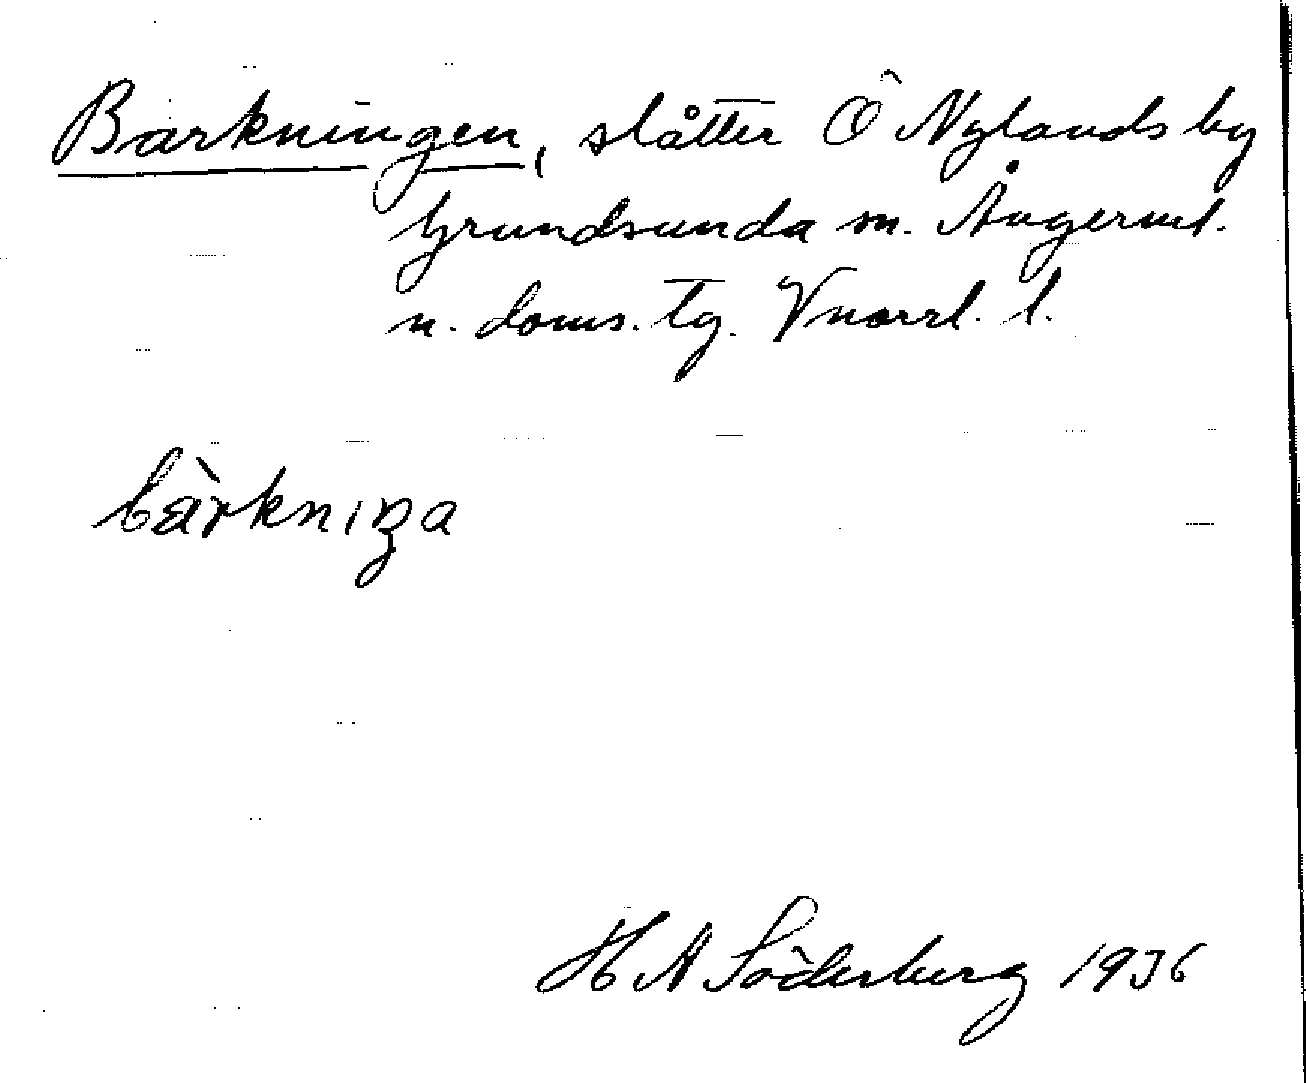 Barkningen, slåtter Ö Nylands by
Grundsunda sn. Ångerml.
n. doms. tg. Vnorrl. l.
bàrkniŋa
H A Söderberg 1936